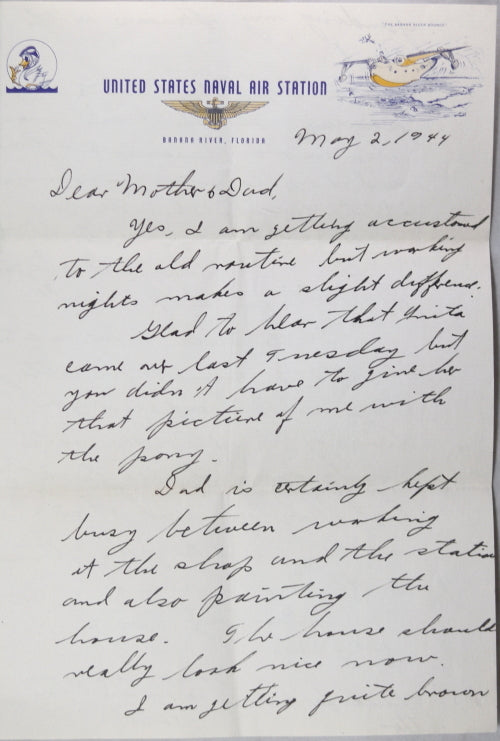 "THE BANANA RIVER BOUNCE"
UNITED STATES NAVAL AIR STATION
BANANA RIVER, FLORIDA
May 2, 1944
Dear Mother & Dad,
Yes, I am getting accustomed
to the old routine but working
nights makes a slight difference.
Glad to hear that
came over last Tuesday but
you didn't have to give her
that picture of me with
the pony.
Dad is certainly kept
busy between working
at the shop and the station
and also painting the
house. The house should
really look nice now.
I am getting quite brown